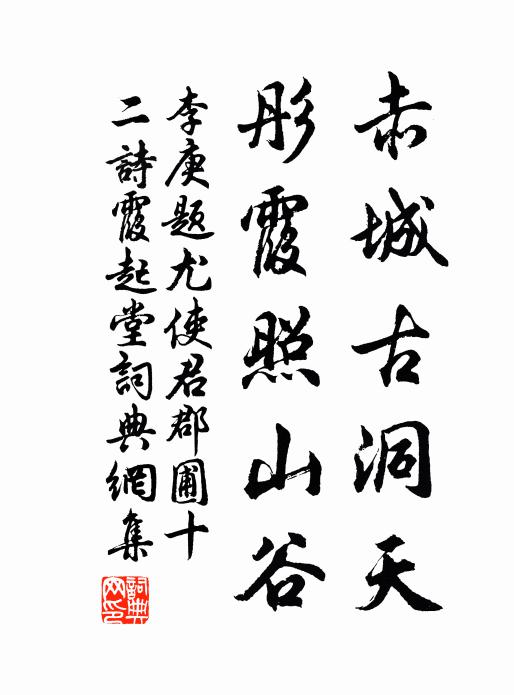 赤城古洞天
彤霞照山谷
李庚题尤使君郡圃十
二詩霞起堂詞典網集
詞典網印